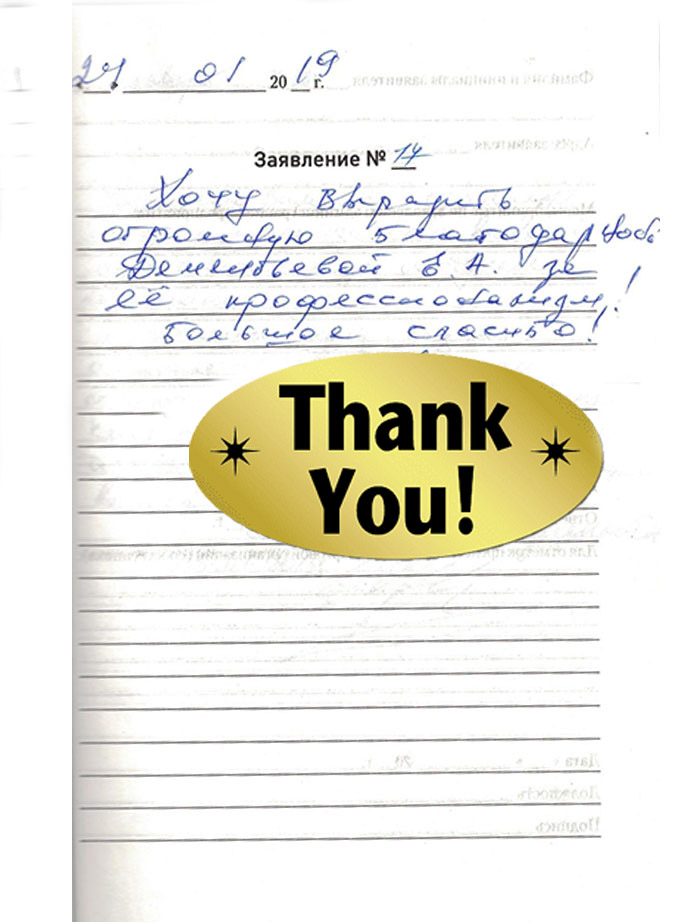 27. 01 2019 г.
Заявление № 14
Хочу выразить
огромную благодарность
Дементьевой Е. А. за
её профессионализм!
Большое спасибо!
Thank
You!
Дата
Должность
Подпись